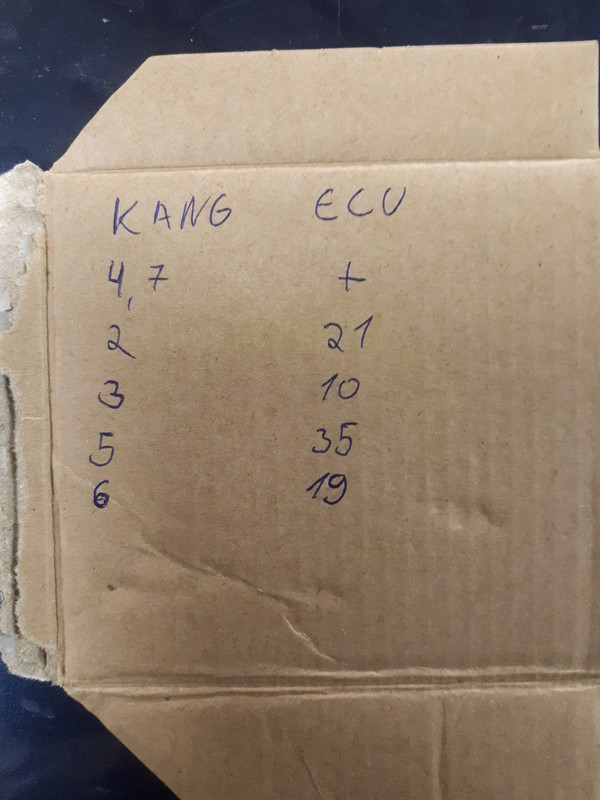 KANG ECU
4,7 +
2 21
3 10
5 35
6 19